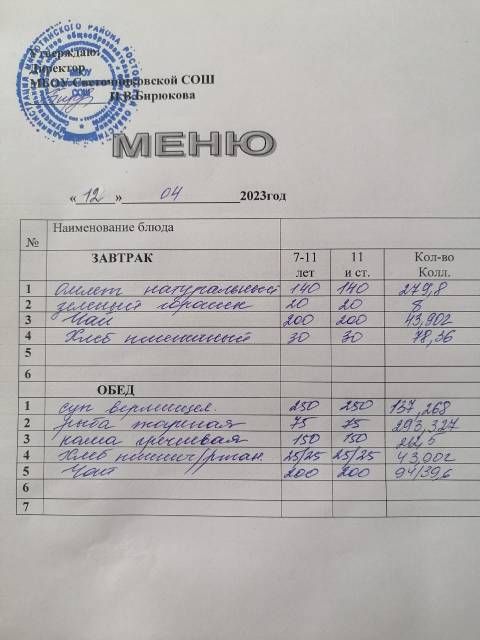 Утверждаю:
Директор
МБОУ Светочниковской СОШ
Н.В.Бирюкова
МЕНЮ
« 12 » 04 2023год
№ Наименование блюда
ЗАВТРАК 7-11 лет 11 и ст. Кол-во Колл.
1 Омлет натуральный 140 140 279,8
2 зеленый горошек 20 20 8
3 Чай 200 200 43,902
4 Хлеб пшеничный 30 30 78,36
5
6
ОБЕД
1 суп вермишел. 250 250 137,268
2 рыба жареная 75 75 293,327
3 каша гречневая 150 150
4 Хлеб пшенич/ржан. 25/25 25/25 43,002
5 Чай 200 200 94/39,6
6
7